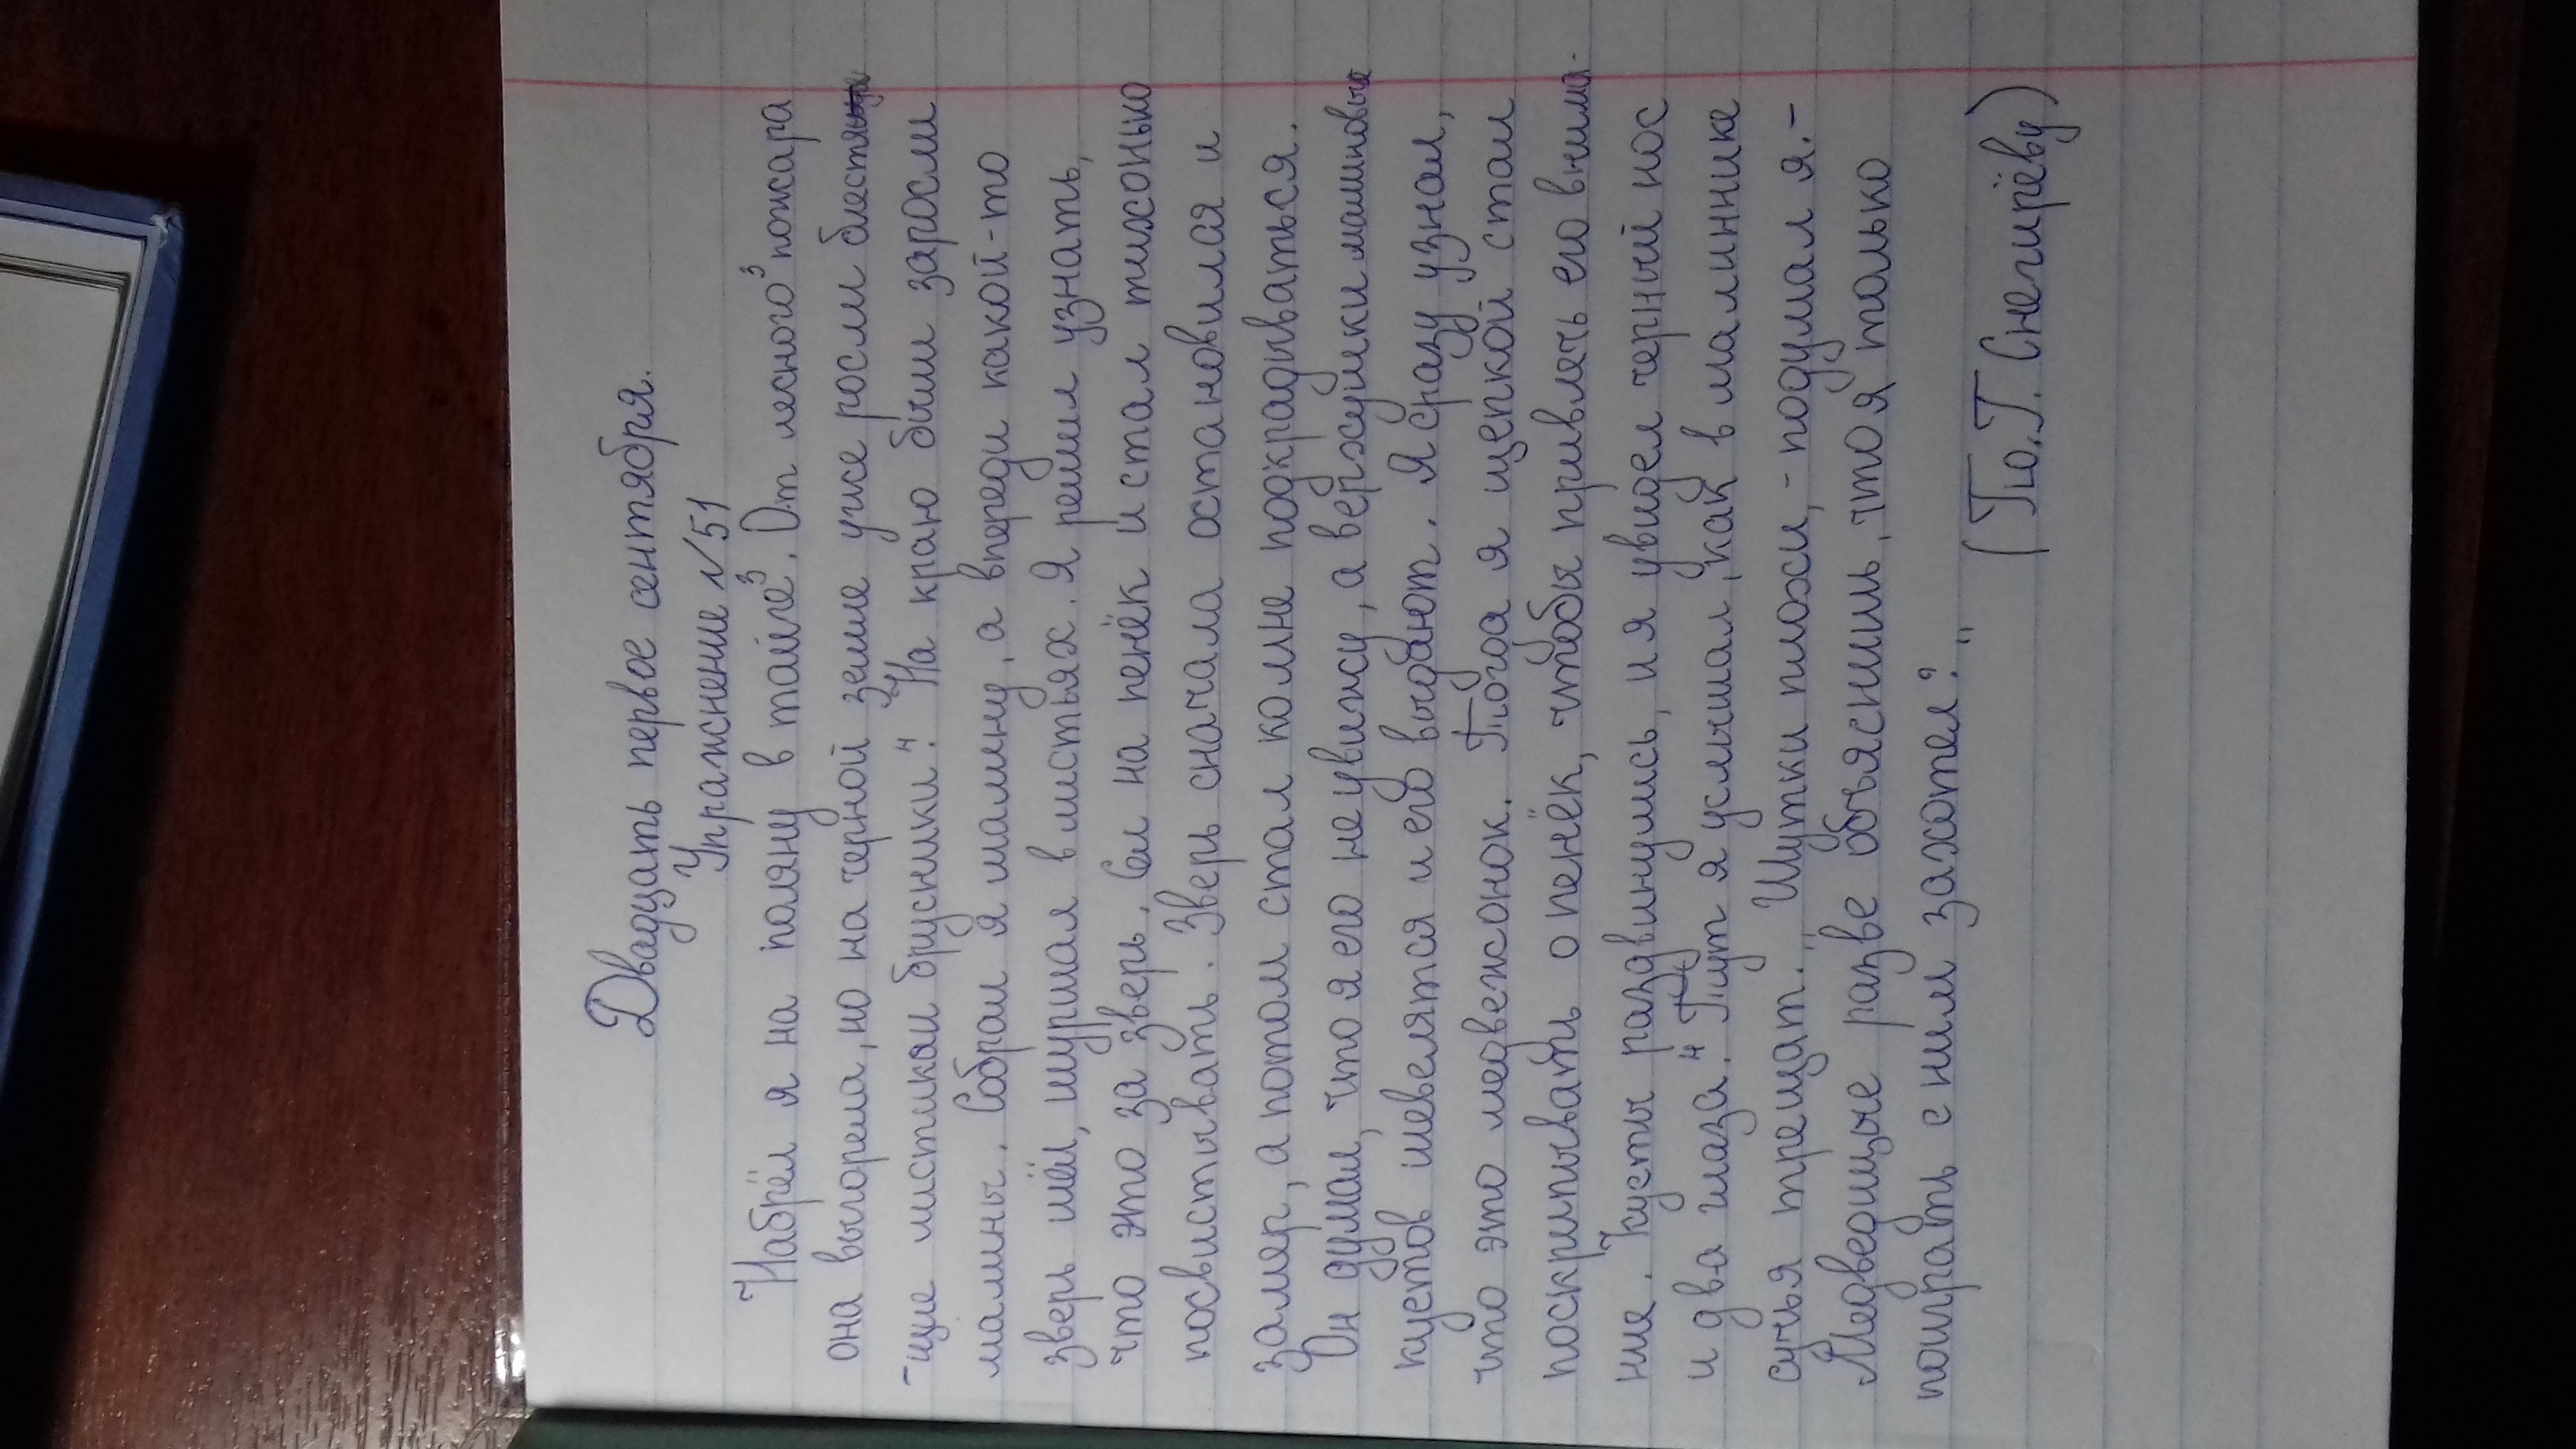 Двадцать первое сентября.
Упражнение №51
Набрёл я на поляну в тайге³. От лесного³ пожара
она выгорела, но на черной земле уже росли блестя
-щие листики брусники.⁴ На краю были заросли
малины. Собрал я малину, а впереди какой-то
зверь шёл, шуршал в листьях. Я решил узнать,
что это за зверь. Сел на пенёк и стал тихонько
посвистывать. Зверь сначала остановился и
замер, а потом стал ко мне подкрадываться.
Он думал, что я его не увижу, а верхушки малиновых
кустов шевелятся и его выдают. Я сразу узнал,
что это медвежонок. Тогда я щепкой стал
поскрипывать о пенёк, чтобы привлечь его внима-
ние. Кусты раздвинулись, и я увидел черный нос
и два глаза.⁴ Тут я услышал, как в малиннике
сучья трещат. "Шутки плохи, - подумал я. -
Медведице разве объяснишь, что я только
поиграть с ним захотел?"
(По.Г. Снегирёву)